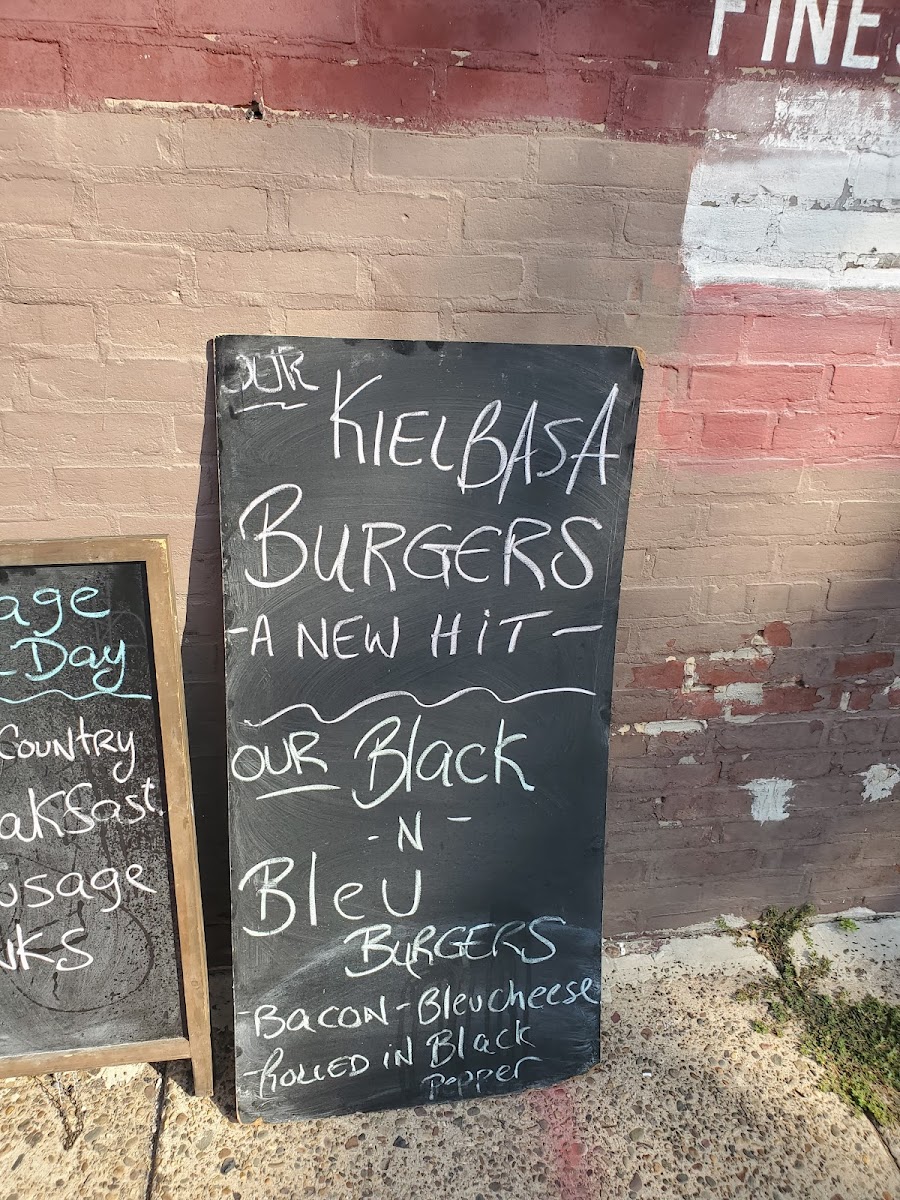 FINE
OUR
KIELBASA
BURGERS
-A NEW HIT-
OUR Black
-N-
Bleu
BURGERS
-BACON-Bleucheese
-ROLLED iN Black
Pepper
age
-Day
COUNTRY
akfast
usage
NKS